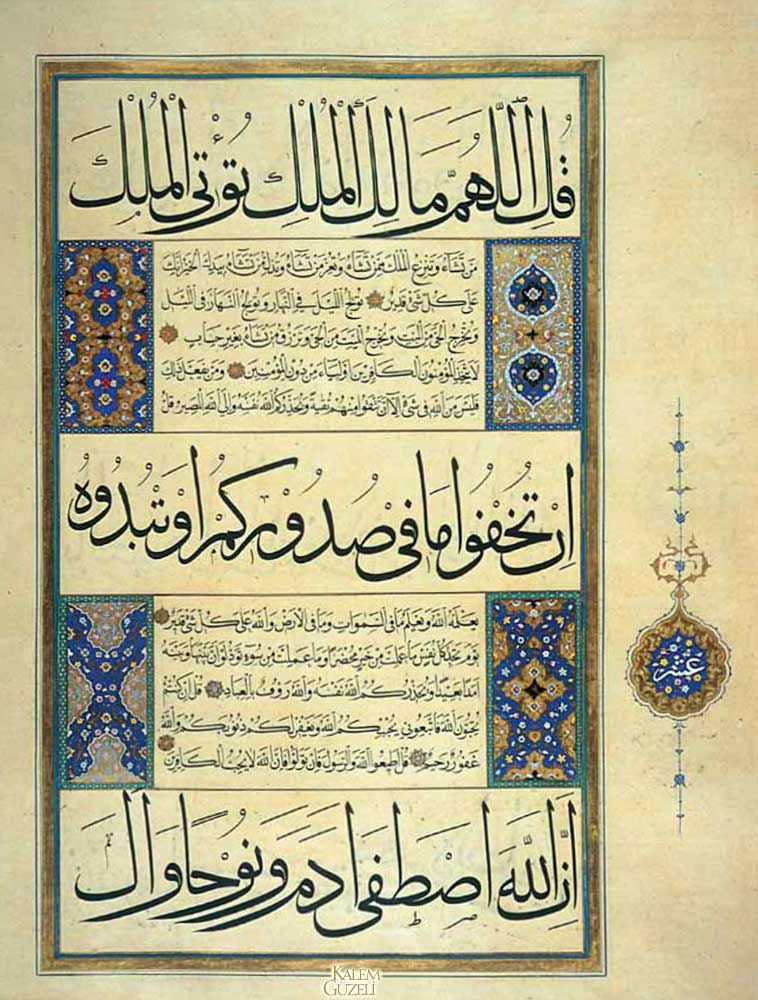 قُلِ اللَّهُمَّ مَالِكَ الْمُلْكِ تُؤْتِي الْمُلْكَ
مَنْ تَشَاءُ وَتَنْزِعُ الْمُلْكَ مِمَّنْ تَشَاءُ وَتُعِزُّ مَنْ تَشَاءُ وَتُذِلُّ مَنْ تَشَاءُ بِيَدِكَ الْخَيْرُ إِنَّكَ
عَلَى كُلِّ شَيْءٍ قَدِيرٌ تُولِجُ اللَّيْلَ فِي النَّهَارِ وَتُولِجُ النَّهَارَ فِي اللَّيْلِ
وَتُخْرِجُ الْحَيَّ مِنَ الْمَيِّتِ وَتُخْرِجُ الْمَيِّتَ مِنَ الْحَيِّ وَتَرْزُقُ مَنْ تَشَاءُ بِغَيْرِ حِسَابٍ
لَا يَتَّخِذِ الْمُؤْمِنُونَ الْكَافِرِينَ أَوْلِيَاءَ مِنْ دُونِ الْمُؤْمِنِينَ وَمَنْ يَفْعَلْ ذَلِكَ
فَلَيْسَ مِنَ اللَّهِ فِي شَيْءٍ إِلَّا أَنْ تَتَّقُوا مِنْهُمْ تُقَاةً وَيُحَذِّرُكُمُ اللَّهُ نَفْسَهُ وَإِلَى اللَّهِ الْمَصِيرُ قُلْ
اِنْ تُخْفُوا مَا فِي صُدُورِكُمْ اَوْ تُبْدُوهُ
يَعْلَمْهُ اللَّهُ وَيَعْلَمُ مَا فِي السَّمَوَاتِ وَمَا فِي الْأَرْضِ وَاللَّهُ عَلَى كُلِّ شَيْءٍ قَدِيرٌ
يَوْمَ تَجِدُ كُلُّ نَفْسٍ مَا عَمِلَتْ مِنْ خَيْرٍ مُحْضَرًا وَمَا عَمِلَتْ مِنْ سُوءٍ تَوَدُّ لَوْ أَنَّ بَيْنَهَا وَبَيْنَهُ
أَمَدًا بَعِيدًا وَيُحَذِّرُكُمُ اللَّهُ نَفْسَهُ وَاللَّهُ رَؤُفٌ بِالْعِبَادِ قُلْ إِنْ كُنْتُمْ
تُحِبُّونَ اللَّهَ فَاتَّبِعُونِي يُحْبِبْكُمُ اللَّهُ وَيَغْفِرْ لَكُمْ ذُنُوبَكُمْ وَاللَّهُ
غَفُورٌ رَحِيمٌ قُلْ أَطِيعُوا اللَّهَ وَالرَّسُولَ فَإِنْ تَوَلَّوْا فَإِنَّ اللَّهَ لَا يُحِبُّ الْكَافِرِينَ
اِنَّ اللَّهَ اصْطَفَى اٰدَمَ وَنُوحًا وَاٰلَ
عشر
KALEM
GÜZELİ